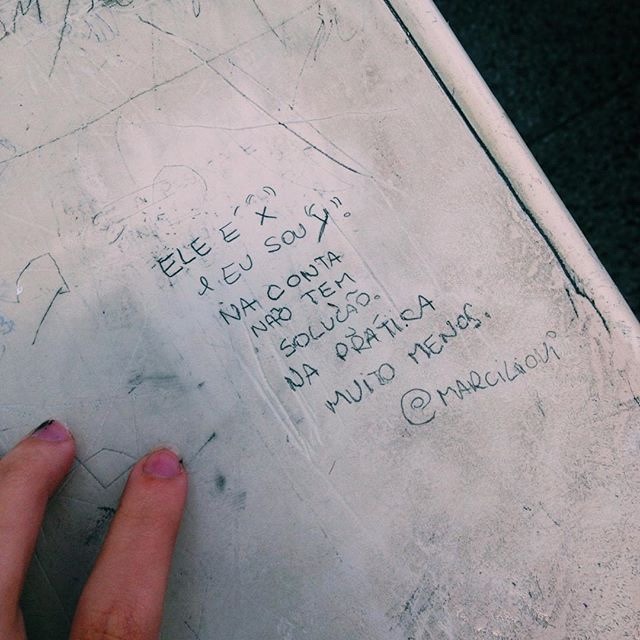 ELE É "X"
e EU SOU "Y".
NA CONTA
NÃO TEM
SOLUÇÃO.
NA PRÁTICA
MUITO MENOS.
@MARCILIOVI